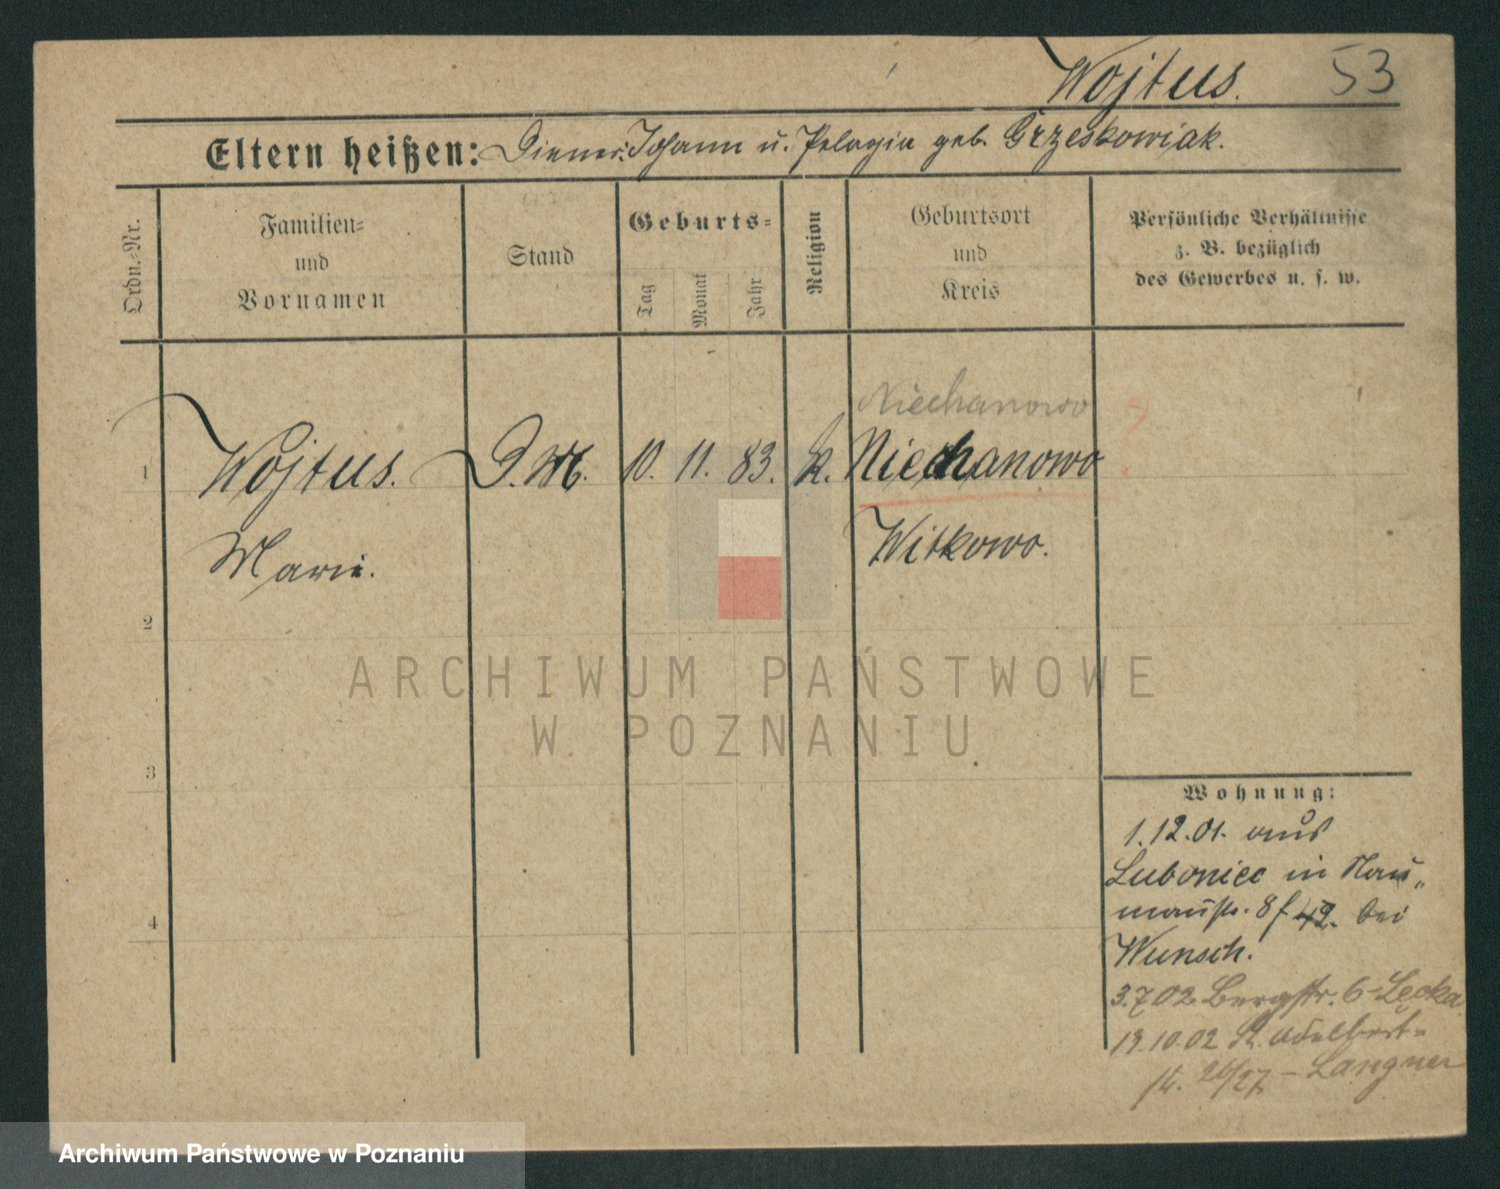 Wojtus.
53
Eltern heißen: Diener Johann u. Pelagia geb. Grzeskowiak.
Ordn.-Nr.
Familien-
und
Vornamen
Stand
Geburts-
Tag
Monat
Jahr
Religion
Geburtsort
und
Kreis
Persönliche Verhältnisse
z. B. bezüglich
des Gewerbes u. s. w.
Niechanowo
1 Wojtus. D.M. 10. 11. 83. K. Niechanowo
Marie. Witkowo.
2
3
4
Wohnung:
1.12.01. aus
Luboniec in Nau-
mannstr. 8 f. 42. bei
Wunsch.
3.7.02 Bergstr. 6 - Lecka
19.10.02 St. Adalbert-
str. 26/27 - Langner
ARCHIWUM PAŃSTWOWE
W POZNANIU
Archiwum Państwowe w Poznaniu